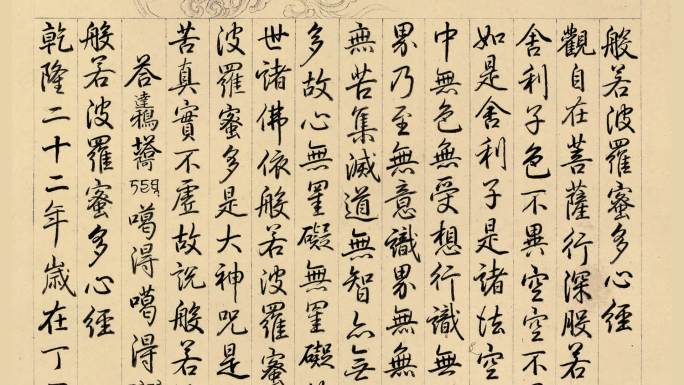 般若波羅蜜多心經
觀自在菩薩行深般若
舍利子色不異空空不
如是舍利子是諸法空
中無色無受想行識無
界乃至無意識界無無
無苦集滅道無智亦無
多故心無罣礙無罣礙
世諸佛依般若波羅蜜
波羅蜜多是大神咒是
苦真實不虛故說般若
荅達鴉噶得噶得
般若波羅蜜多心經
乾隆二十二年歲在丁